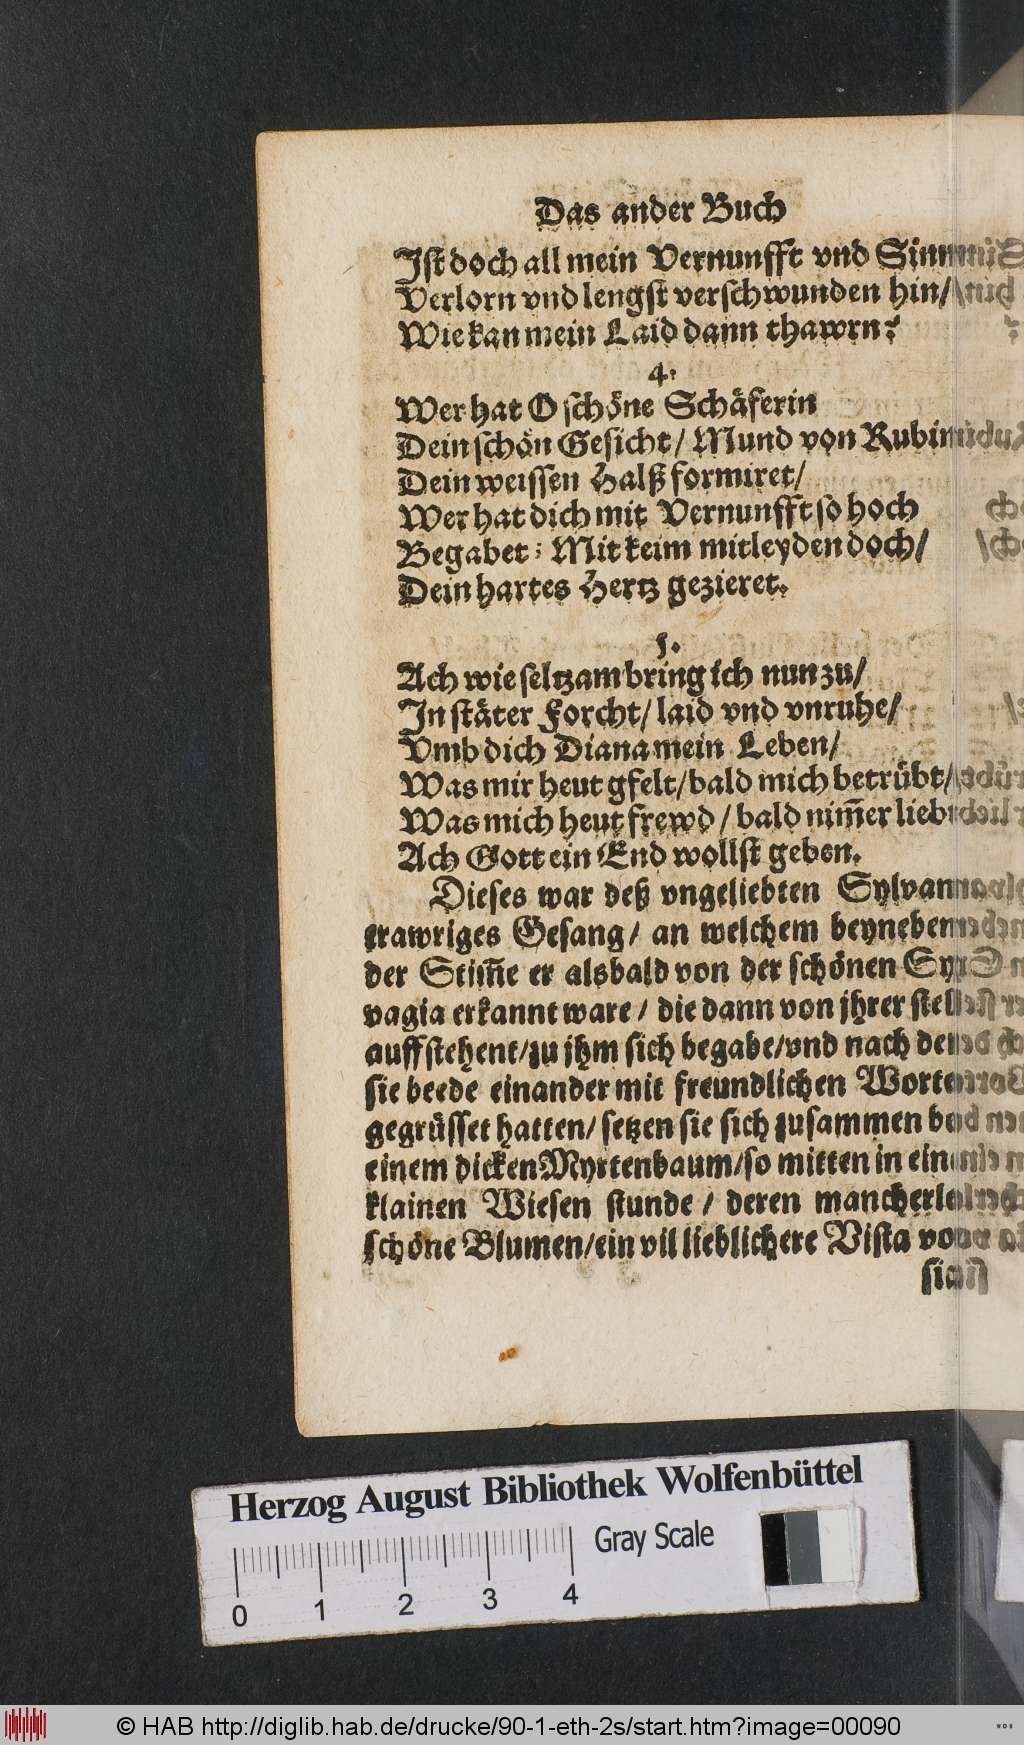 Das ander Buch
Ist doch all mein Vernunfft vnd Sinn
Verlorn vnd lengst verschwunden hin/
Wie kan mein Laid dann thawrn?
4.
Wer hat O schöne Schäferin
Dein schön Gesicht/ Mund von Rubin
Dein weissen Halß formiret/
Wer hat dich mit Vernunfft so hoch
Begabet: Mit keim mitleyden doch/
Dein hartes Hertz gezieret.
5.
Ach wie seltzam bring ich nun zu/
In stäter Forcht/ laid vnd vnruhe/
Vmb dich Diana mein Leben/
Was mir heut gfelt/ bald mich betrübt/
Was mich heut frewd / bald nim̃er liebt
Ach Gott ein End wollst geben.
Dieses war deß vngeliebten Sylvan
trawriges Gesang/ an welchem beyneben
der Stim̃e er alsbald von der schönen Syl
vagia erkannt ware / die dann von jhrer stell
auffstehent/ zu jhm sich begabe/ vnd nach dem
sie beede einander mit freundlichen Worten
gegrüsset hatten/ setzen sie sich zusammen bey
einem dicken Myrtenbaum/ so mitten in einer
klainen Wiesen stunde / deren mancherley
schöne Blumen/ ein vil lieblichere Vista von
sich
Herzog August Bibliothek Wolfenbüttel
Gray Scale
0 1 2 3 4
© HAB http://diglib.hab.de/drucke/90-1-eth-2s/start.htm?image=00090